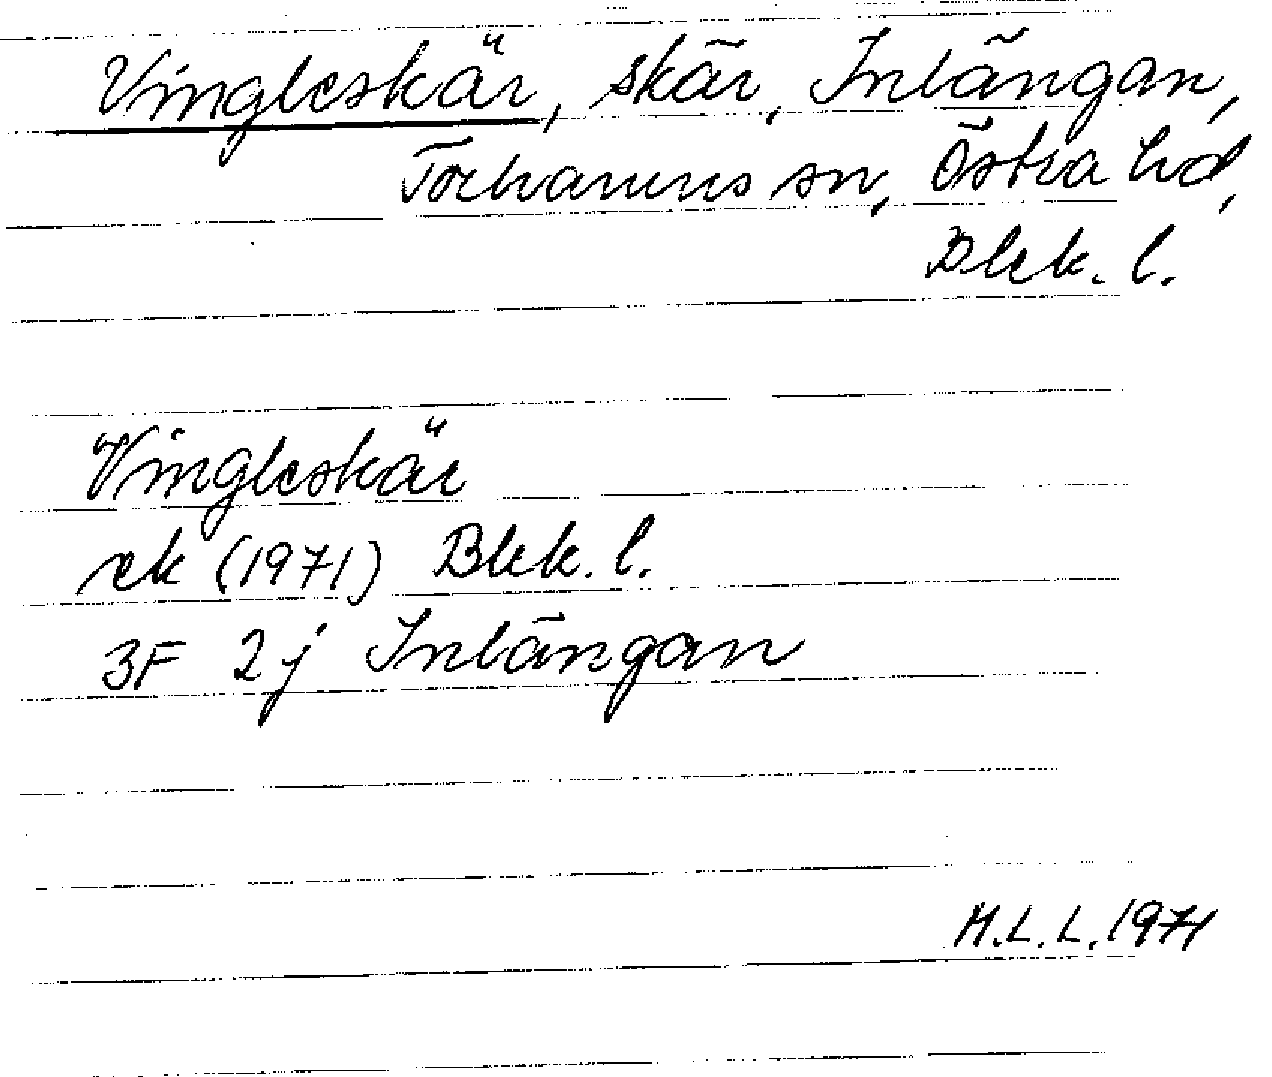 Vingleskär, skär, Inlängan,
Torhamns sn, Östra hd,
Blek. l.
Vingleskär
ek (1971) Blek. l.
3F 2j Inlängan
M.L.L. 1971